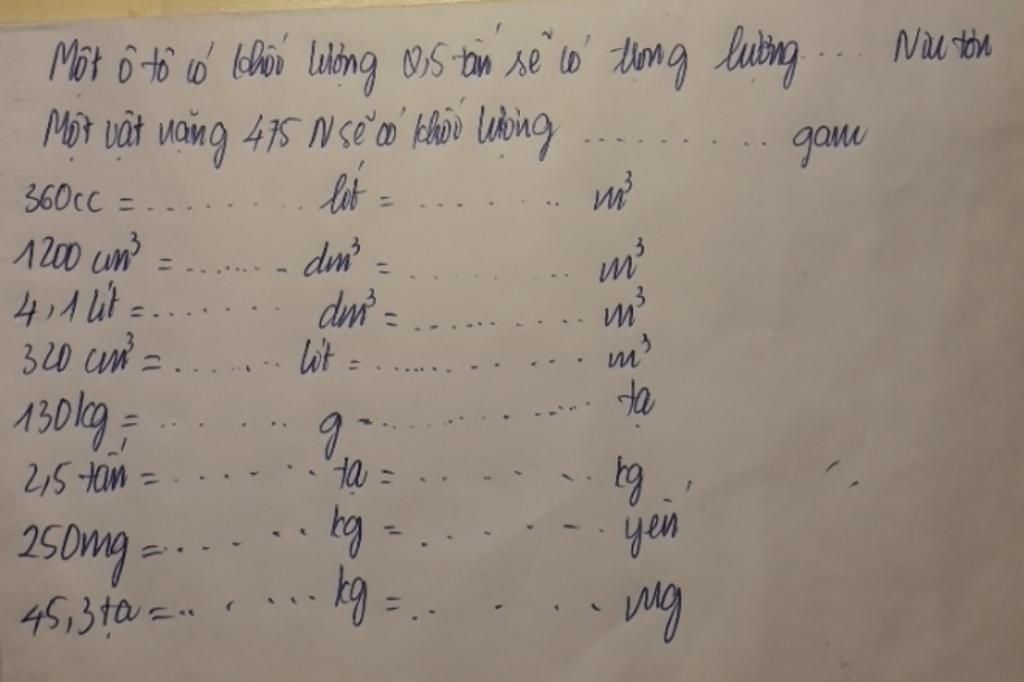 Một ô tô có khối lượng 2,5 tấn sẽ có trọng lượng ... Niu tơn
Một vật nặng 475 N sẽ có khối lượng .......... gam
360cc = ......... lít = ......... m³
1200 cm³ = ....... dm³ = ......... m³
4,1 lít = ....... dm³ = ......... m³
320 cm³ = ....... lít = ......... m³
130kg = ....... g = ......... tạ
2,5 tấn = ....... tạ = ....... kg
250mg = ....... kg = ....... yến
45,3 tạ = ....... kg = ....... mg